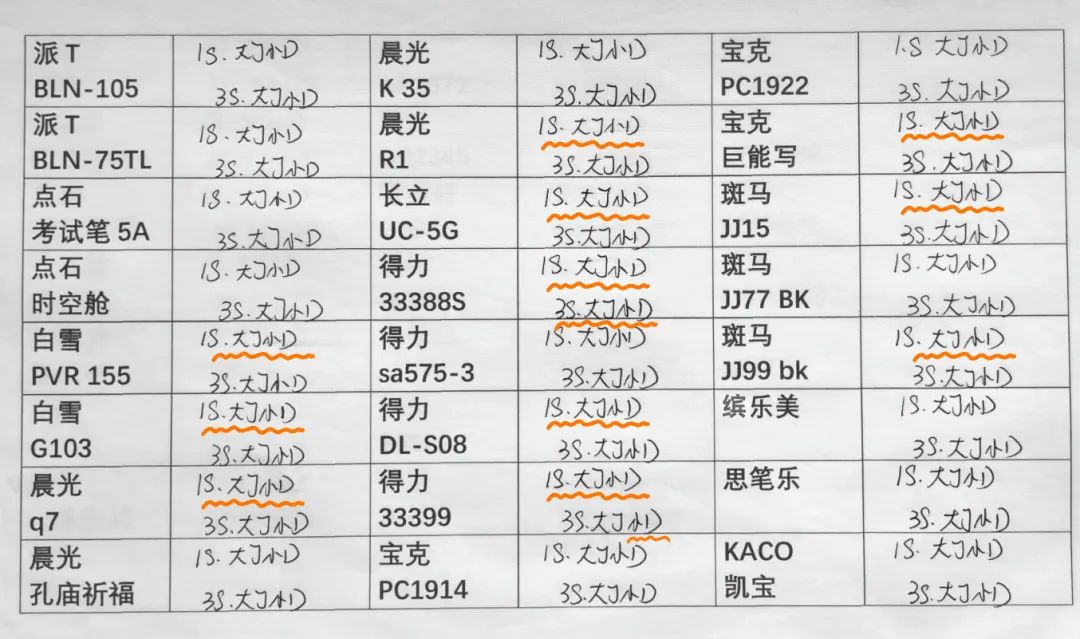 派 T
BLN-105
1S. 大J小D
3S. 大J小D
晨光
K 35
1S. 大J小D
3S. 大J小D
宝克
PC1922
1.S 大J小D
3S. 大J小D
派 T
BLN-75TL
1S. 大J小D
3S. 大J小D
晨光
R1
1S. 大J小D
3S. 大J小D
宝克
巨能写
1S. 大J小D
3S. 大J小D
点石
考试笔 5A
1S. 大J小D
3S. 大J小D
长立
UC-5G
1S. 大J小D
3S. 大J小D
斑马
JJ15
1S. 大J小D
3S. 大J小D
点石
时空舱
1S. 大J小D
3S. 大J小D
得力
33388S
1S. 大J小D
3S. 大J小D
斑马
JJ77 BK
1S. 大J小D
3S. 大J小D
白雪
PVR 155
1S. 大J小D
3S. 大J小D
得力
sa575-3
1S. 大J小D
3S. 大J小D
斑马
JJ99 bk
1S. 大J小D
3S. 大J小D
白雪
G103
1S. 大J小D
3S. 大J小D
得力
DL-S08
1S. 大J小D
3S. 大J小D
缤乐美
1S. 大J小D
3S. 大J小D
晨光
q7
1S. 大J小D
3S. 大J小D
得力
33399
1S. 大J小D
3S. 大J小D
思笔乐
1S. 大J小D
3S. 大J小D
晨光
孔庙祈福
1S. 大J小D
3S. 大J小D
宝克
PC1914
1S. 大J小D
3S. 大J小D
KACO
凯宝
1S. 大J小D
3S. 大J小D